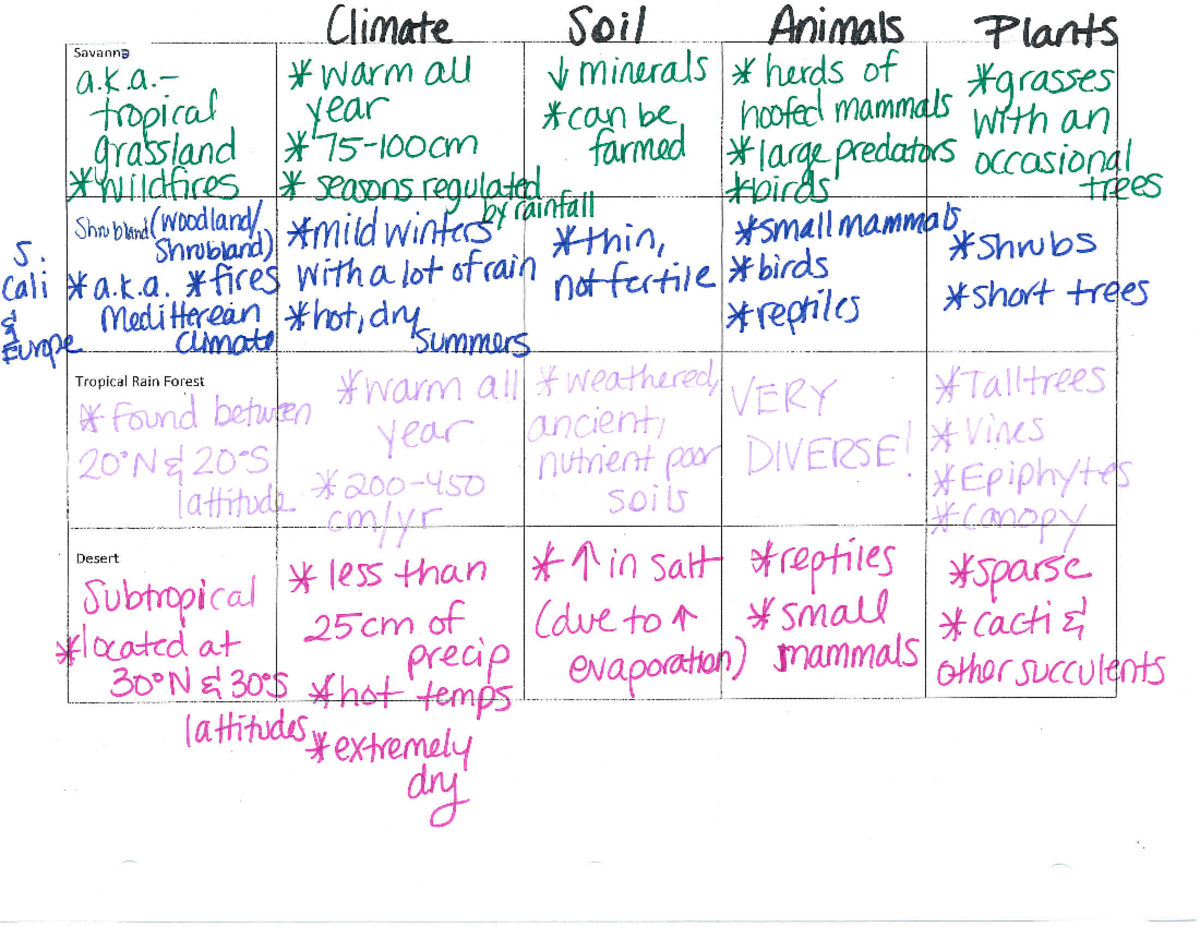 Climate Soil Animals Plants
Savanna
a.k.a.-
tropical
grassland
*wildfires
* warm all
year
* 75-100cm
* seasons regulated
by rainfall
↓ minerals
*can be
farmed
* herds of
hoofed mammals
*large predators
*birds
*grasses
with an
occasional
trees
S.
Cali
&
Europe
Shrubland (woodland/
Shrubland)
*a.k.a. *fires
Meditterean
climate
*mild winters
with a lot of rain
*hot, dry
summers
*thin,
not fertile
*small mammals
*birds
*reptiles
*shrubs
*short trees
Tropical Rain Forest
* Found between
20°N & 20°S
lattitude
*warm all
year
*200-450
cm/yr
*weathered,
ancient,
nutrient poor
soils
VERY
DIVERSE!
*Tall trees
*Vines
*Epiphytes
*canopy
Desert
Subtropical
*located at
30°N & 30°S
lattitudes
* less than
25cm of
precip
*hot temps
*extremely
dry
*↑ in salt
(due to ↑
evaporation)
*reptiles
* small
mammals
*sparse
* cacti &
other succulents